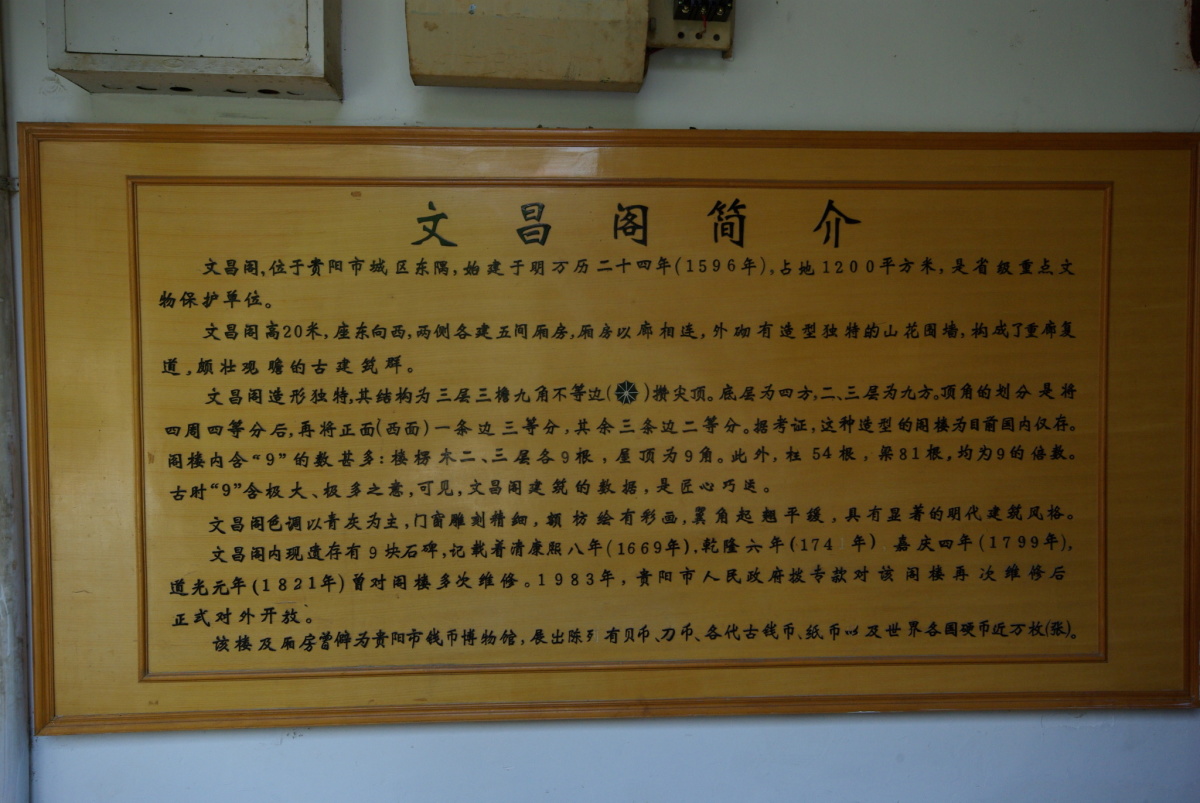 文昌阁简介
文昌阁,位于贵阳市城区东隅,始建于明万历二十四年(1596年),占地1200平方米,是省级重点文
物保护单位。
文昌阁高20米,座东向西,两侧各建五间厢房,厢房以廊相连,外砌有造型独特的山花围墙,构成了重廊复
道,颇壮观瞻的古建筑群。
文昌阁造形独特,其结构为三层三檐九角不等边()攒尖顶。底层为四方,二、三层为九方。顶角的划分是将
四周四等分后,再将正面(西面)一条边三等分,其余三条边二等分。据考证,这种造型的阁楼为目前国内仅存。
阁楼内含“9”的数甚多:楼楞木二、三层各9根,屋顶为9角。此外,柱54根,梁81根,均为9的倍数。
古时“9”含极大、极多之意,可见,文昌阁建筑的数据,是匠心巧运。
文昌阁色调以青灰为主,门窗雕刻精细,额枋绘有彩画,翼角起翘平缓,具有显著的明代建筑风格。
文昌阁内现遗存有9块石碑,记载着清康熙八年(1669年).乾隆六年(174 年) 嘉庆四年(1799年),
道光元年(1821年)曾对阁楼多次维修。1983年,贵阳市人民政府拨专款对该阁楼再次维修后
正式对外开放。
该楼及厢房曾僻为贵阳市钱币博物馆,展出陈列有贝币、刀币、各代古钱币、纸币以及世界各国硬币近万枚(张)。